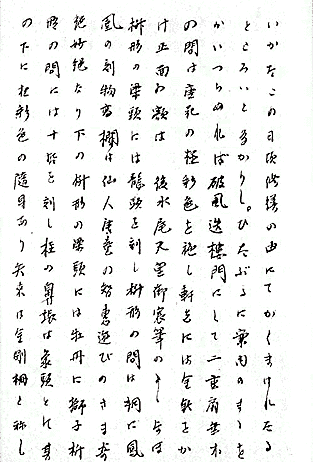 いかなこの日頃修様の由にてかくまけれたる
ところいと多かりし。ひたぶるに案内のまゝを
かいつらぬれば破風造楼門にして二重扇垂木
の間は唐花の極彩色を施し軒先には金物をか
け正面の額は 後水尾天皇御宸筆の よ しなは
桝形の梁頭には龍頭を刻し桝形の間は桐に鳳
凰の刻物高欄は仙人唐童の智恵遊びのさま
絶妙絶たり下の桝形の梁頭には牡丹に獅子桝
形の間には十哲を刻し柱の鼻端は象頭とす其
の下に極彩色の随身あり矢来は金剛柵と称し